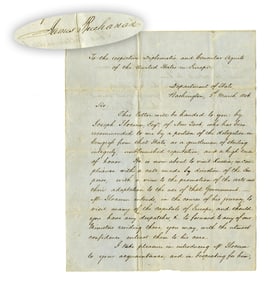 James Buchanan
To the respective Diplomatic and Consular Agents
of the United States in Europe.
Department of State,
Washington, 5th March 1846
Sir
This letter will be handed to you by
Joseph Esqr of New York who has been
recommended to me by a portion of the delegation in
Congress from that State as a gentleman of sterling
integrity, reputation and a high sense
of honor. He is now about to visit Russia, in com-
pliance with a wish made by direction of the Em-
peror, with a view to the promotion of the arts and
their adaptation to the use of that Government.
Mr. intends, in the course of his journey, to
visit many of the capitals of Europe, and should
you have any dispatches to forward to any of our
Ministers residing there you may, with the utmost
confidence entrust them to his care.
I take pleasure in introducing Mr.
to your acquaintance, and in bespeaking for him